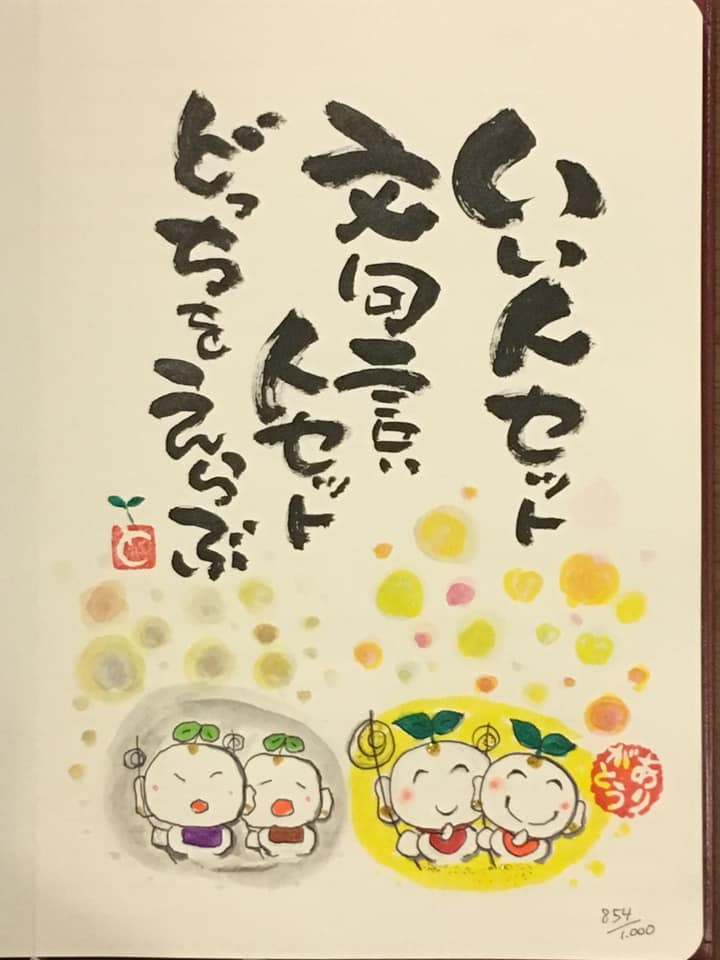 いい人セット
文句言い
人セット
どっちをえらぶ
ありがとう
854/1.000